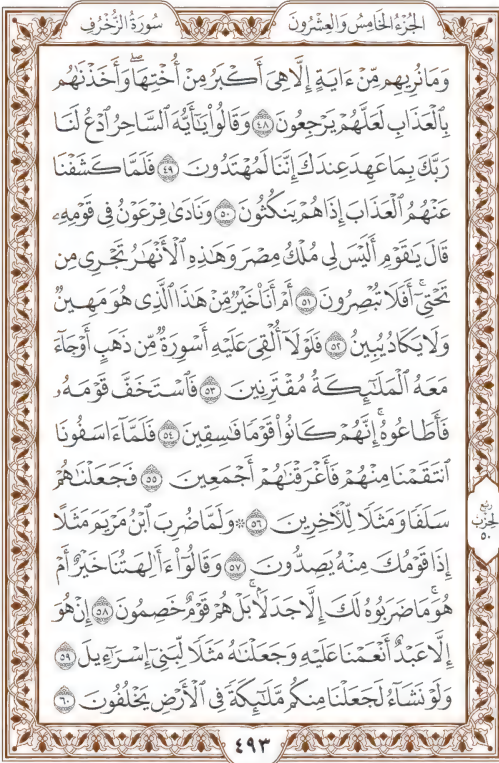 سُورَةُ الزُّخْرُفِ
الجُزْءُ الخَامِسُ وَالعِشْرُونَ
وَمَا نُرِيهِم مِّنْ ءَايَةٍ إِلَّا هِيَ أَكْبَرُ مِنْ أُخْتِهَاۖ وَأَخَذْنَٰهُم
بِٱلْعَذَابِ لَعَلَّهُمْ يَرْجِعُونَ ٤٨ وَقَالُوا۟ يَٰٓأَيُّهَ ٱلسَّاحِرُ ٱدْعُ لَنَا
رَبَّكَ بِمَا عَهِدَ عِندَكَ إِنَّنَا لَمُهْتَدُونَ ٤٩ فَلَمَّا كَشَفْنَا
عَنْهُمُ ٱلْعَذَابَ إِذَا هُمْ يَنكُثُونَ ٥٠ وَنَادَىٰ فِرْعَوْنُ فِى قَوْمِهِۦ
قَالَ يَٰقَوْمِ أَلَيْسَ لِى مُلْكُ مِصْرَ وَهَٰذِهِ ٱلْأَنْهَٰرُ تَجْرِى مِن
تَحْتِىٓۚ أَفَلَا تُبْصِرُونَ ٥١ أَمْ أَنَا۠ خَيْرٌ مِّنْ هَٰذَا ٱلَّذِى هُوَ مَهِينٌ
وَلَا يَكَادُ يُبِينُ ٥٢ فَلَوْلَآ أُلْقِىَ عَلَيْهِ أَسْوِرَةٌ مِّن ذَهَبٍ أَوْ جَآءَ
مَعَهُ ٱلْمَلَٰٓئِكَةُ مُقْتَرِنِينَ ٥٣ فَٱسْتَخَفَّ قَوْمَهُۥ
فَأَطَاعُوهُۚ إِنَّهُمْ كَانُوا۟ قَوْمًا فَٰسِقِينَ ٥٤ فَلَمَّآ ءَاسَفُونَا
ٱنتَقَمْنَا مِنْهُمْ فَأَغْرَقْنَٰهُمْ أَجْمَعِينَ ٥٥ فَجَعَلْنَٰهُمْ
سَلَفًا وَمَثَلًا لِّلْءَاخِرِينَ ٥٦ ۞ وَلَمَّا ضُرِبَ ٱبْنُ مَرْيَمَ مَثَلًا
إِذَا قَوْمُكَ مِنْهُ يَصِدُّونَ ٥٧ وَقَالُوٓا۟ ءَأَٰلِهَتُنَا خَيْرٌ أَمْ
هُوَۚ مَا ضَرَبُوهُ لَكَ إِلَّا جَدَلًۢاۚ بَلْ هُمْ قَوْمٌ خَصِمُونَ ٥٨ إِنْ هُوَ
إِلَّا عَبْدٌ أَنْعَمْنَا عَلَيْهِ وَجَعَلْنَٰهُ مَثَلًا لِّبَنِىٓ إِسْرَٰٓءِيلَ ٥٩
وَلَوْ نَشَآءُ لَجَعَلْنَا مِنكُم مَّلَٰٓئِكَةً فِى ٱلْأَرْضِ يَخْلُفُونَ ٦٠
ربع
الحزب
٥٠
٤٩٣